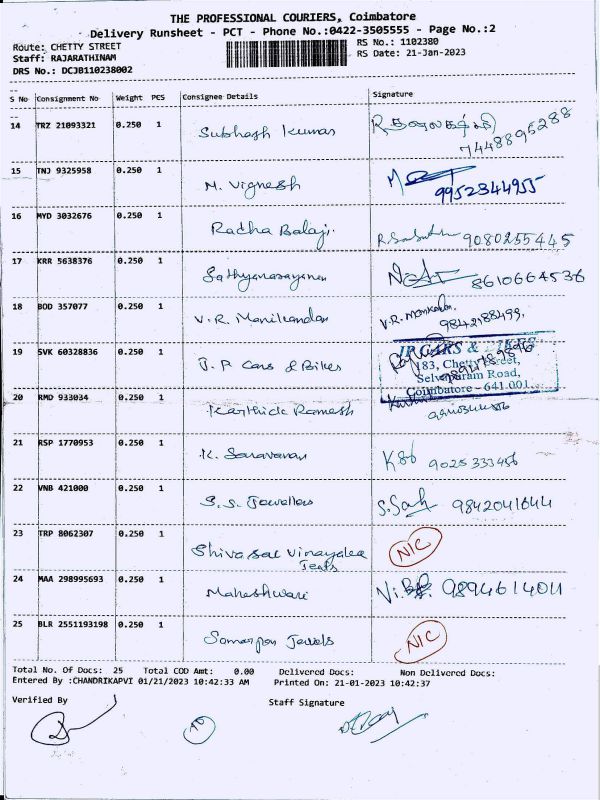 THE PROFESSIONAL COURIERS, Coimbatore
Delivery Runsheet - PCT - Phone No.:0422-3505555 - Page No.:2
Route: CHETTY STREET RS No.: 1102380
Staff: RAJARATHINAM RS Date: 21-Jan-2023
DRS No.: DCJB110238002
S No Consignment No Weight PCS Consignee Details Signature
14 TRZ 21093321 0.250 1 Subhash Kumar 7448895288
15 TNJ 9325958 0.250 1 M. Vignesh 9952344955
16 MYD 3032676 0.250 1 Radha Balaji 9080255445
17 KRR 5638376 0.250 1 Sathyanarayanan 8610664536
18 BOD 357077 0.250 1 V.R. Manikandan V.R. Manikandan 9842188499
19 SVK 60328836 0.250 1 J.P Cars & Bikes
JP CARS & BIKES
183, Chetty Street,
Selvapuram Road,
Coimbatore - 641 001.
20 RMD 933034 0.250 1 Karthick Ramesh
21 RSP 1770953 0.250 1 K. Saravanan 9025333456
22 VNB 421000 0.250 1 S.S. Jewellers 9842041644
23 TRP 8062307 0.250 1 Shivasal Vinayaka NIC
24 MAA 298995693 0.250 1 Maheshwari 9894614011
25 BLR 2551193198 0.250 1 Jewels NIC
Total No. Of Docs: 25 Total COD Amt: 0.00 Delivered Docs: Non Delivered Docs:
Entered By :CHANDRIKAPVI 01/21/2023 10:42:33 AM Printed On: 21-01-2023 10:42:37
Verified By Staff Signature